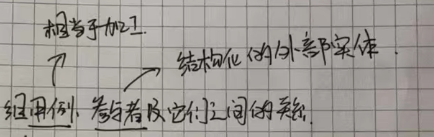 相当于加工.
结构化的外部实体.
组用例、参与者及它们之间的关系.